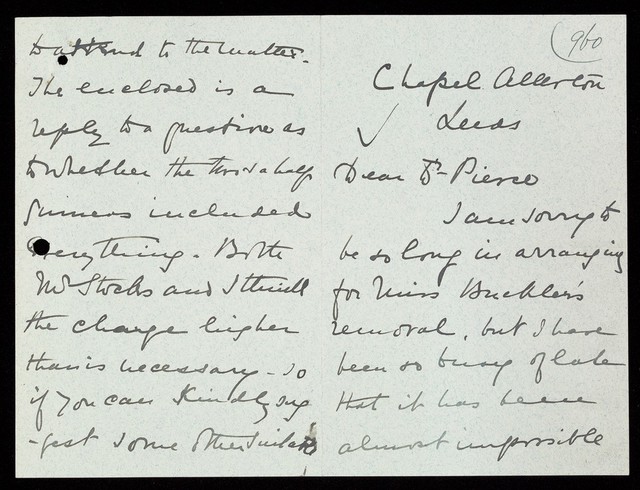 960
Chapel Allerton
Leeds
Dear Dr Pierce
I am sorry to
be so long in arranging
for Miss Buckler's
removal, but I have
been so busy of late
that it has been
almost impossible
to attend to the matter.
The enclosed is a
reply to a question as
to whether the two & a half
guineas included
everything. Both
Mr Stocks and I think
the charge higher
than is necessary - so
if you can kindly sug
-gest some other suitable